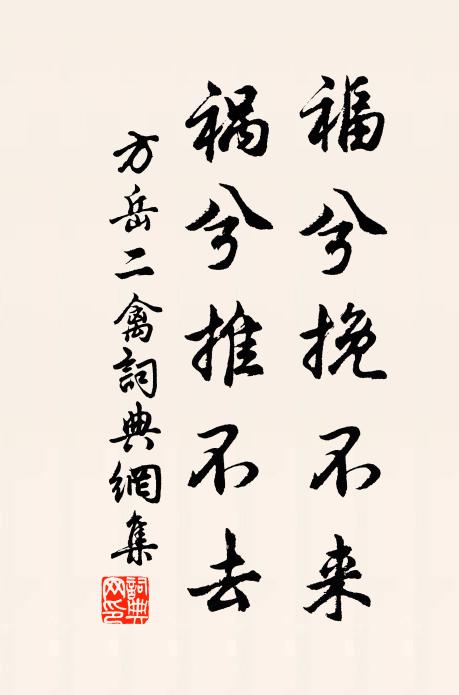 福兮挽不来
祸兮推不去
方岳二禽詞典網集
詞典网印